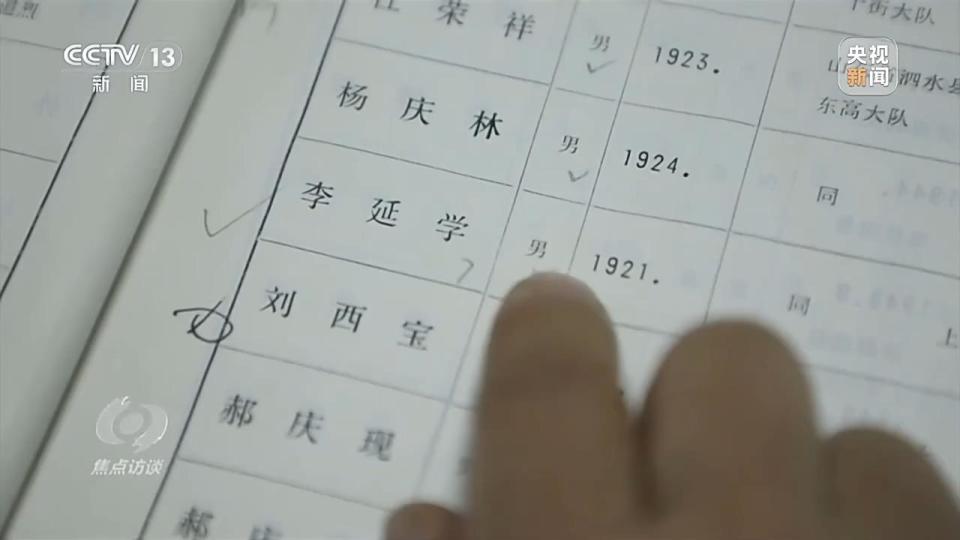 CCTV 13
新闻
央视
新闻
荣祥 男 1923.
十街大队
杨庆林 男 1924.
泗水县
东高大队
李延学 男 1921. 同
刘西宝 同 上
郝庆现
郝庆
焦点访谈